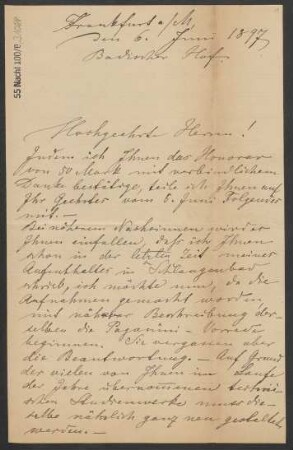 55 Nachl 100/B
Frankfurt a/M,
den 6. Juni 1897
Badischer Hof
Hochgeehrte Herrn!
Indem ich Ihnen das Honorar
von 50 Mark mit verbindlichem
Danke bestätige, teile ich Ihnen auf
Ihr Geehrtes vom 5. Juni Folgendes
mit. –
Bei näherem Nachsinnen wird es
Ihnen einfallen, daß ich Ihnen
schon in der letzten Zeit meines
Aufenthaltes in Schlangenbad
schrieb, ich möchte nun, da die
Aufnahmen gemacht worden
mit näherer Beschreibung der-
selben die Paganini-
beginnen. Sie vergaßen aber
die Beantwortung. – Auf Grund
der vielen von Ihnen im Laufe
der Jahre übernommenen
Studienwerke muss die-
selbe nämlich ganz neu gestaltet
werden. –